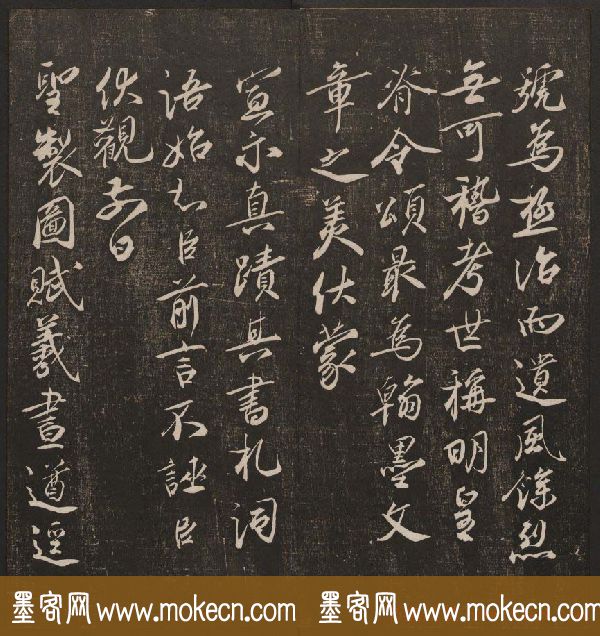 號為極治而遺風餘烈
無可稽考世稱明皇
脊令頌最為翰墨文
章之美伏蒙
宣示真蹟其書札詞
語始知臣前言不誣臣
伏觀今日
聖製圖賦羲畫遒逕
墨客网 www.mokecn.com 墨客网 www.mokecn.com